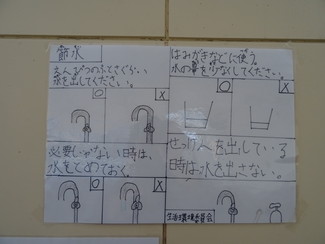 節水
えんぴつのふとさぐらい
水を出してください。
O
X
必要じゃない時は、
水をとめておく。
O
X
はみがきなどに使う。
水の量を少なくしてください。
O
X
せっけんを出している
時は水を出さない。
生活環境委員会